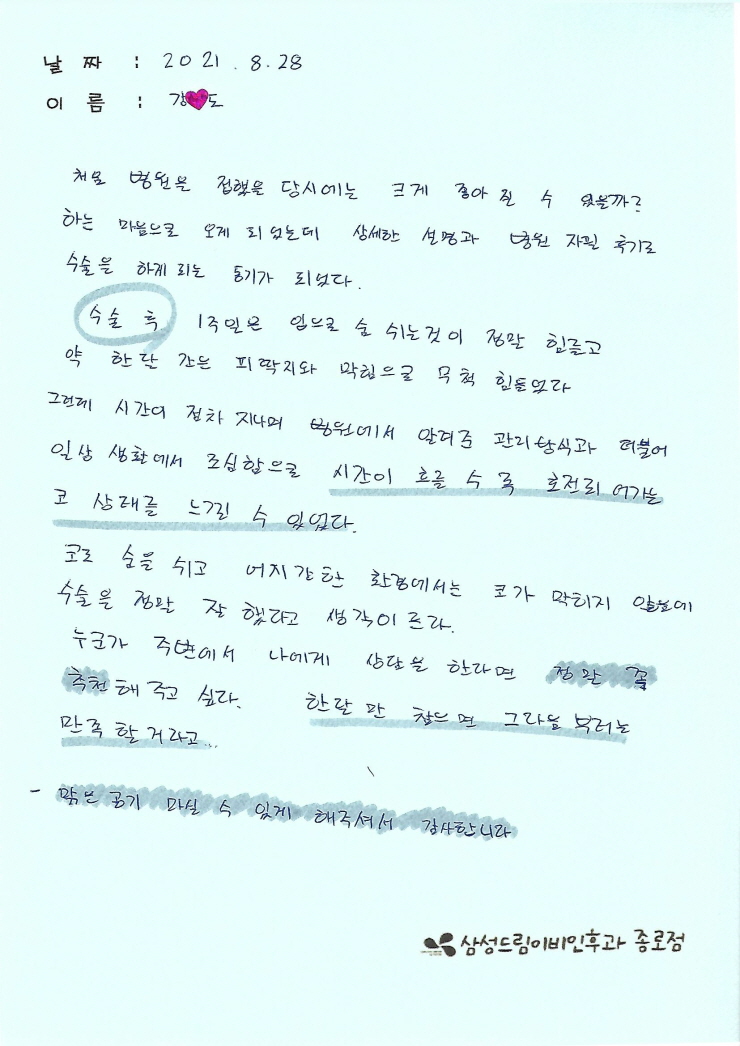 날 짜 : 2021. 8. 28
이 름 : 강 도
처음 병원을 접했을 당시에는 크게 좋아 질 수 있을까?
하는 마음으로 오게 되었는데 상세한 설명과 병원 자필 후기로
수술을 하게 되는 동기가 되었다.
수술 후 1주일은 입으로 숨 쉬는것이 정말 힘들고
약 한달 간은 피딱지와 막힘으로 무척 힘들었다
그런데 시간이 점차 지나며 병원에서 알려준 관리방식과 더불어
일상 생활에서 조심함으로 시간이 흐를 수 록 호전되어가는
코 상태를 느낄 수 있었다.
코로 숨을 쉬고 어지간한 환경에서는 코가 막히지 않는데
수술을 정말 잘 했다고 생각이 든다.
누군가 주변에서 나에게 상담을 한다면 정말 꼭
추천해 주고 싶다. 한달 만 참으면 그 다음부터는
만족 할 거라고...
- 맑은 공기 마실 수 있게 해주셔서 감사합니다
삼성드림이비인후과 종로점